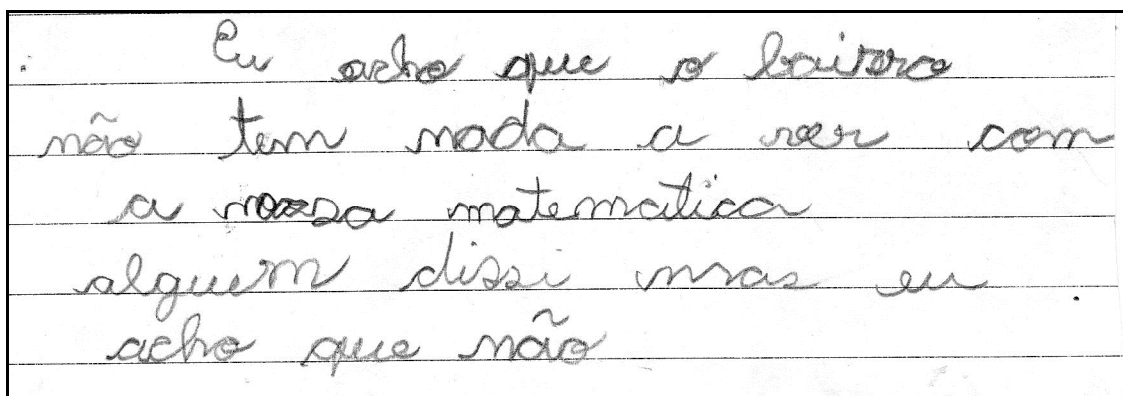 Eu acho que o bairro
não tem nada a ver com
a nossa matematica
alguem dissi mas eu
acho que não